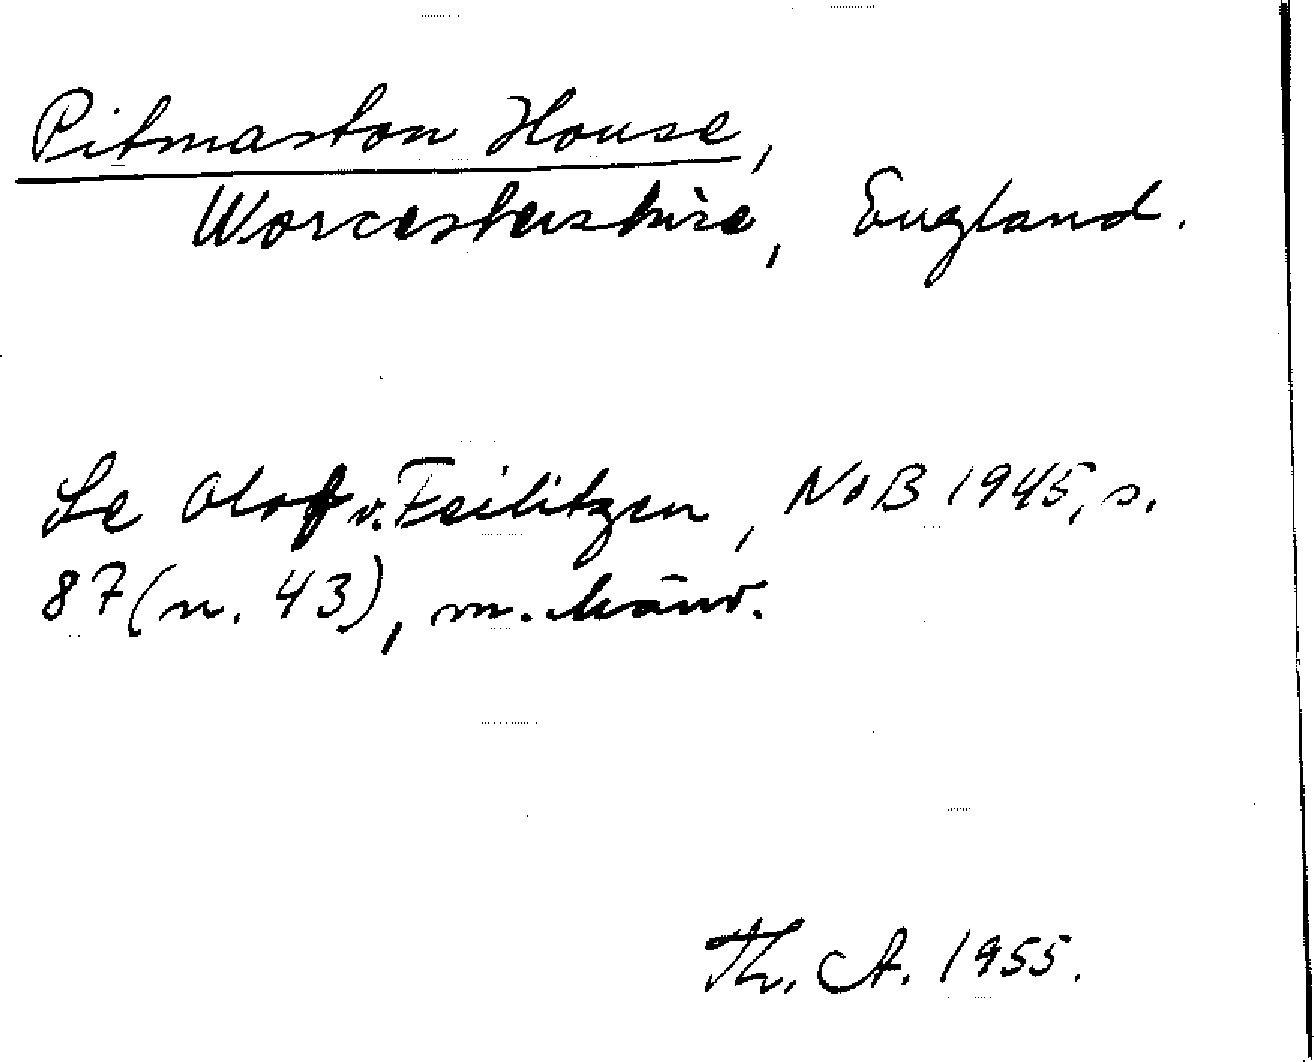 Pitmaston House,
Worcestershire, England.
Se Olof v. Feilitzen, NoB 1945, s.
87 (n. 43), m. hänv.
Th. A. 1955.